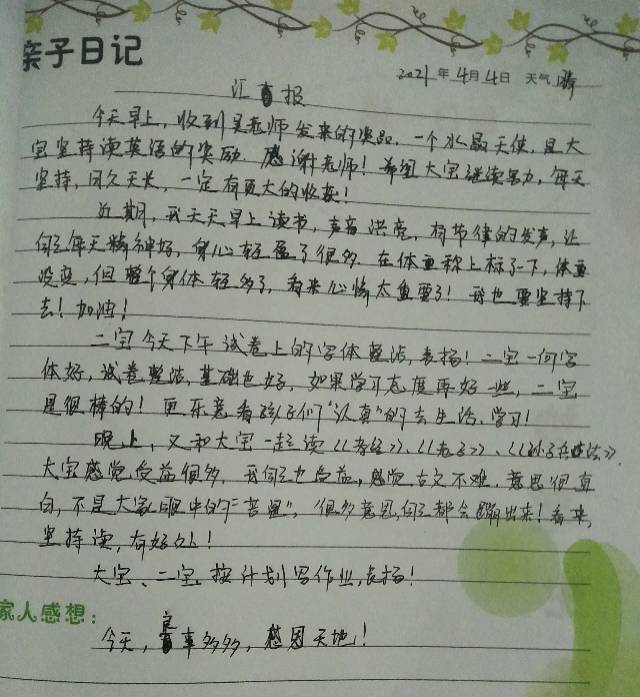 亲子日记
2021年4月4日 天气 晴
汇报
今天早上，收到吴老师发来的奖品，一个水晶天使，是大
宝坚持读英语的奖励。感谢老师！希望大宝继续努力，每天
坚持，日久天长，一定有更大的收获！
近期，我天天早上读书，声音洪亮，有节律的发声，让
自己每天精神好，身心轻盈了很多。在体重称上称了一下，体重
没变，但整个身体轻多了，看来心情太重要了！我也要坚持下
去！加油！
二宝今天下午试卷上的字体整洁，表扬！二宝一向字
体好，试卷整洁，基础也好，如果学习态度再好一些，二宝
是很棒的！更乐意看孩子们“认真”的去生活、学习！
晚上，又和大宝一起读《《孝经》》、《《老子》》、《《孙子兵法》》，
大宝感觉受益很多，我自己也受益，感觉古文不难，意思很直
白，不是大家眼中的“苦涩”，很多意思，自己都会蹦出来！看来，
坚持读，有好处！
大宝、二宝按计划写作业，表扬！
家人感想：
今天，喜事多多，感恩天地！